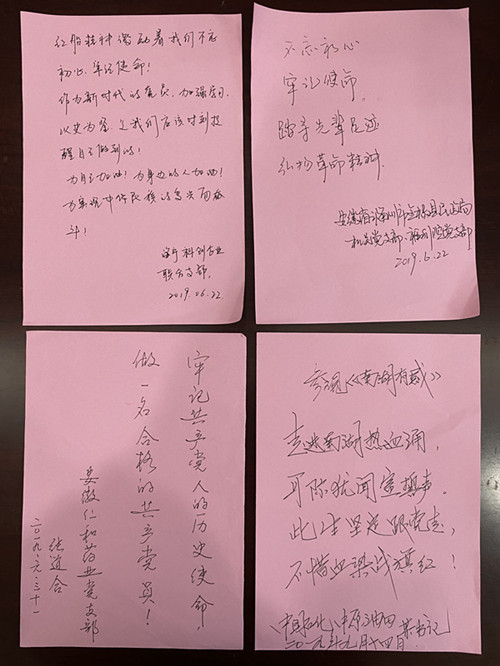 红船精神激励着我们不忘
初心、牢记使命！
作为新时代的党员，加强学习
以史为鉴，是我们应该时刻提
醒自己做到的！
为自己加油！为身边的人加油！
为实现中华民族的复兴而奋
斗！
科创企业
联合支部
2019.06.22.
不忘初心
牢记使命
踏寻先辈足迹
弘扬革命精神
安徽省滁州市
2019.6.22
牢记共产党人的历史使命，
做一名合格的共产党员！
安徽仁和药业党支部
张道合
参观《南湖有感》
走进南湖热血涌，
耳际犹闻宣誓声。
此生坚定跟党走，
不惜血染战旗红！
中国石化中原油田
二〇一九年九月十四日